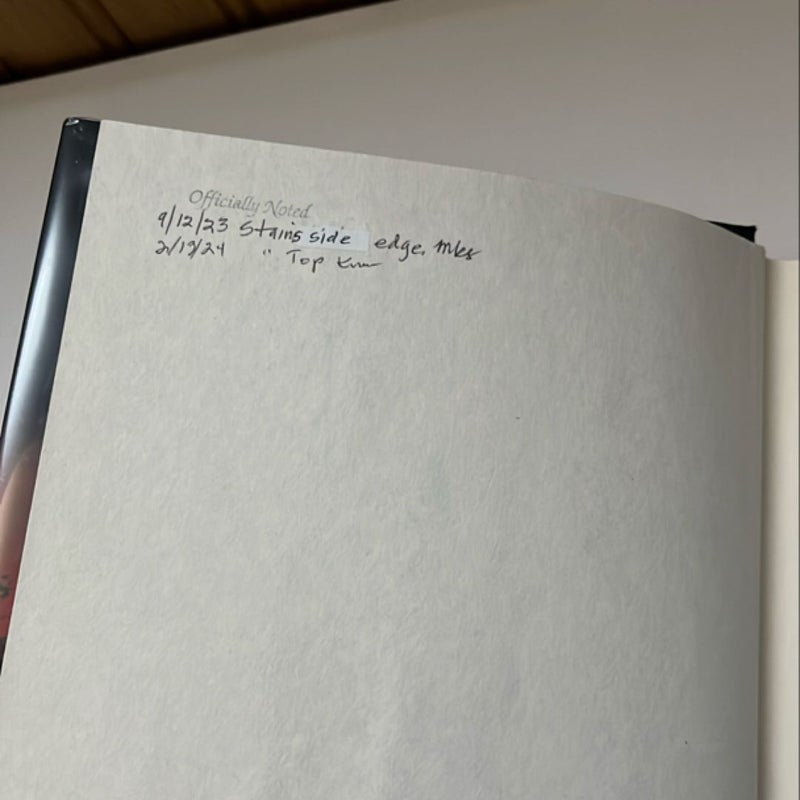 Officially Noted
9/12/23 Stains side edge, mks
2/13/24 " Top